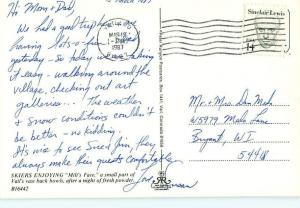 Hi Mom & Dad,
We had a good trip
having lots of fun
yesterday - so today we're taking
it easy - walking around the
village, checking out art
galleries... the weather
& snow conditions couldn't
be better - no kidding.
It's nice to see Sue & Jim, they
always make their guests comfortable.
Love,
SKIERS ENJOYING "Mill's Face," a small part of
Vail's vast back bowls, after a night of fresh powder.
B16442
MAR 18
1987
Sinclair Lewis
14
USA
Mr. & Mrs. Don
W5979 Lane
Bryant, WI.
54418